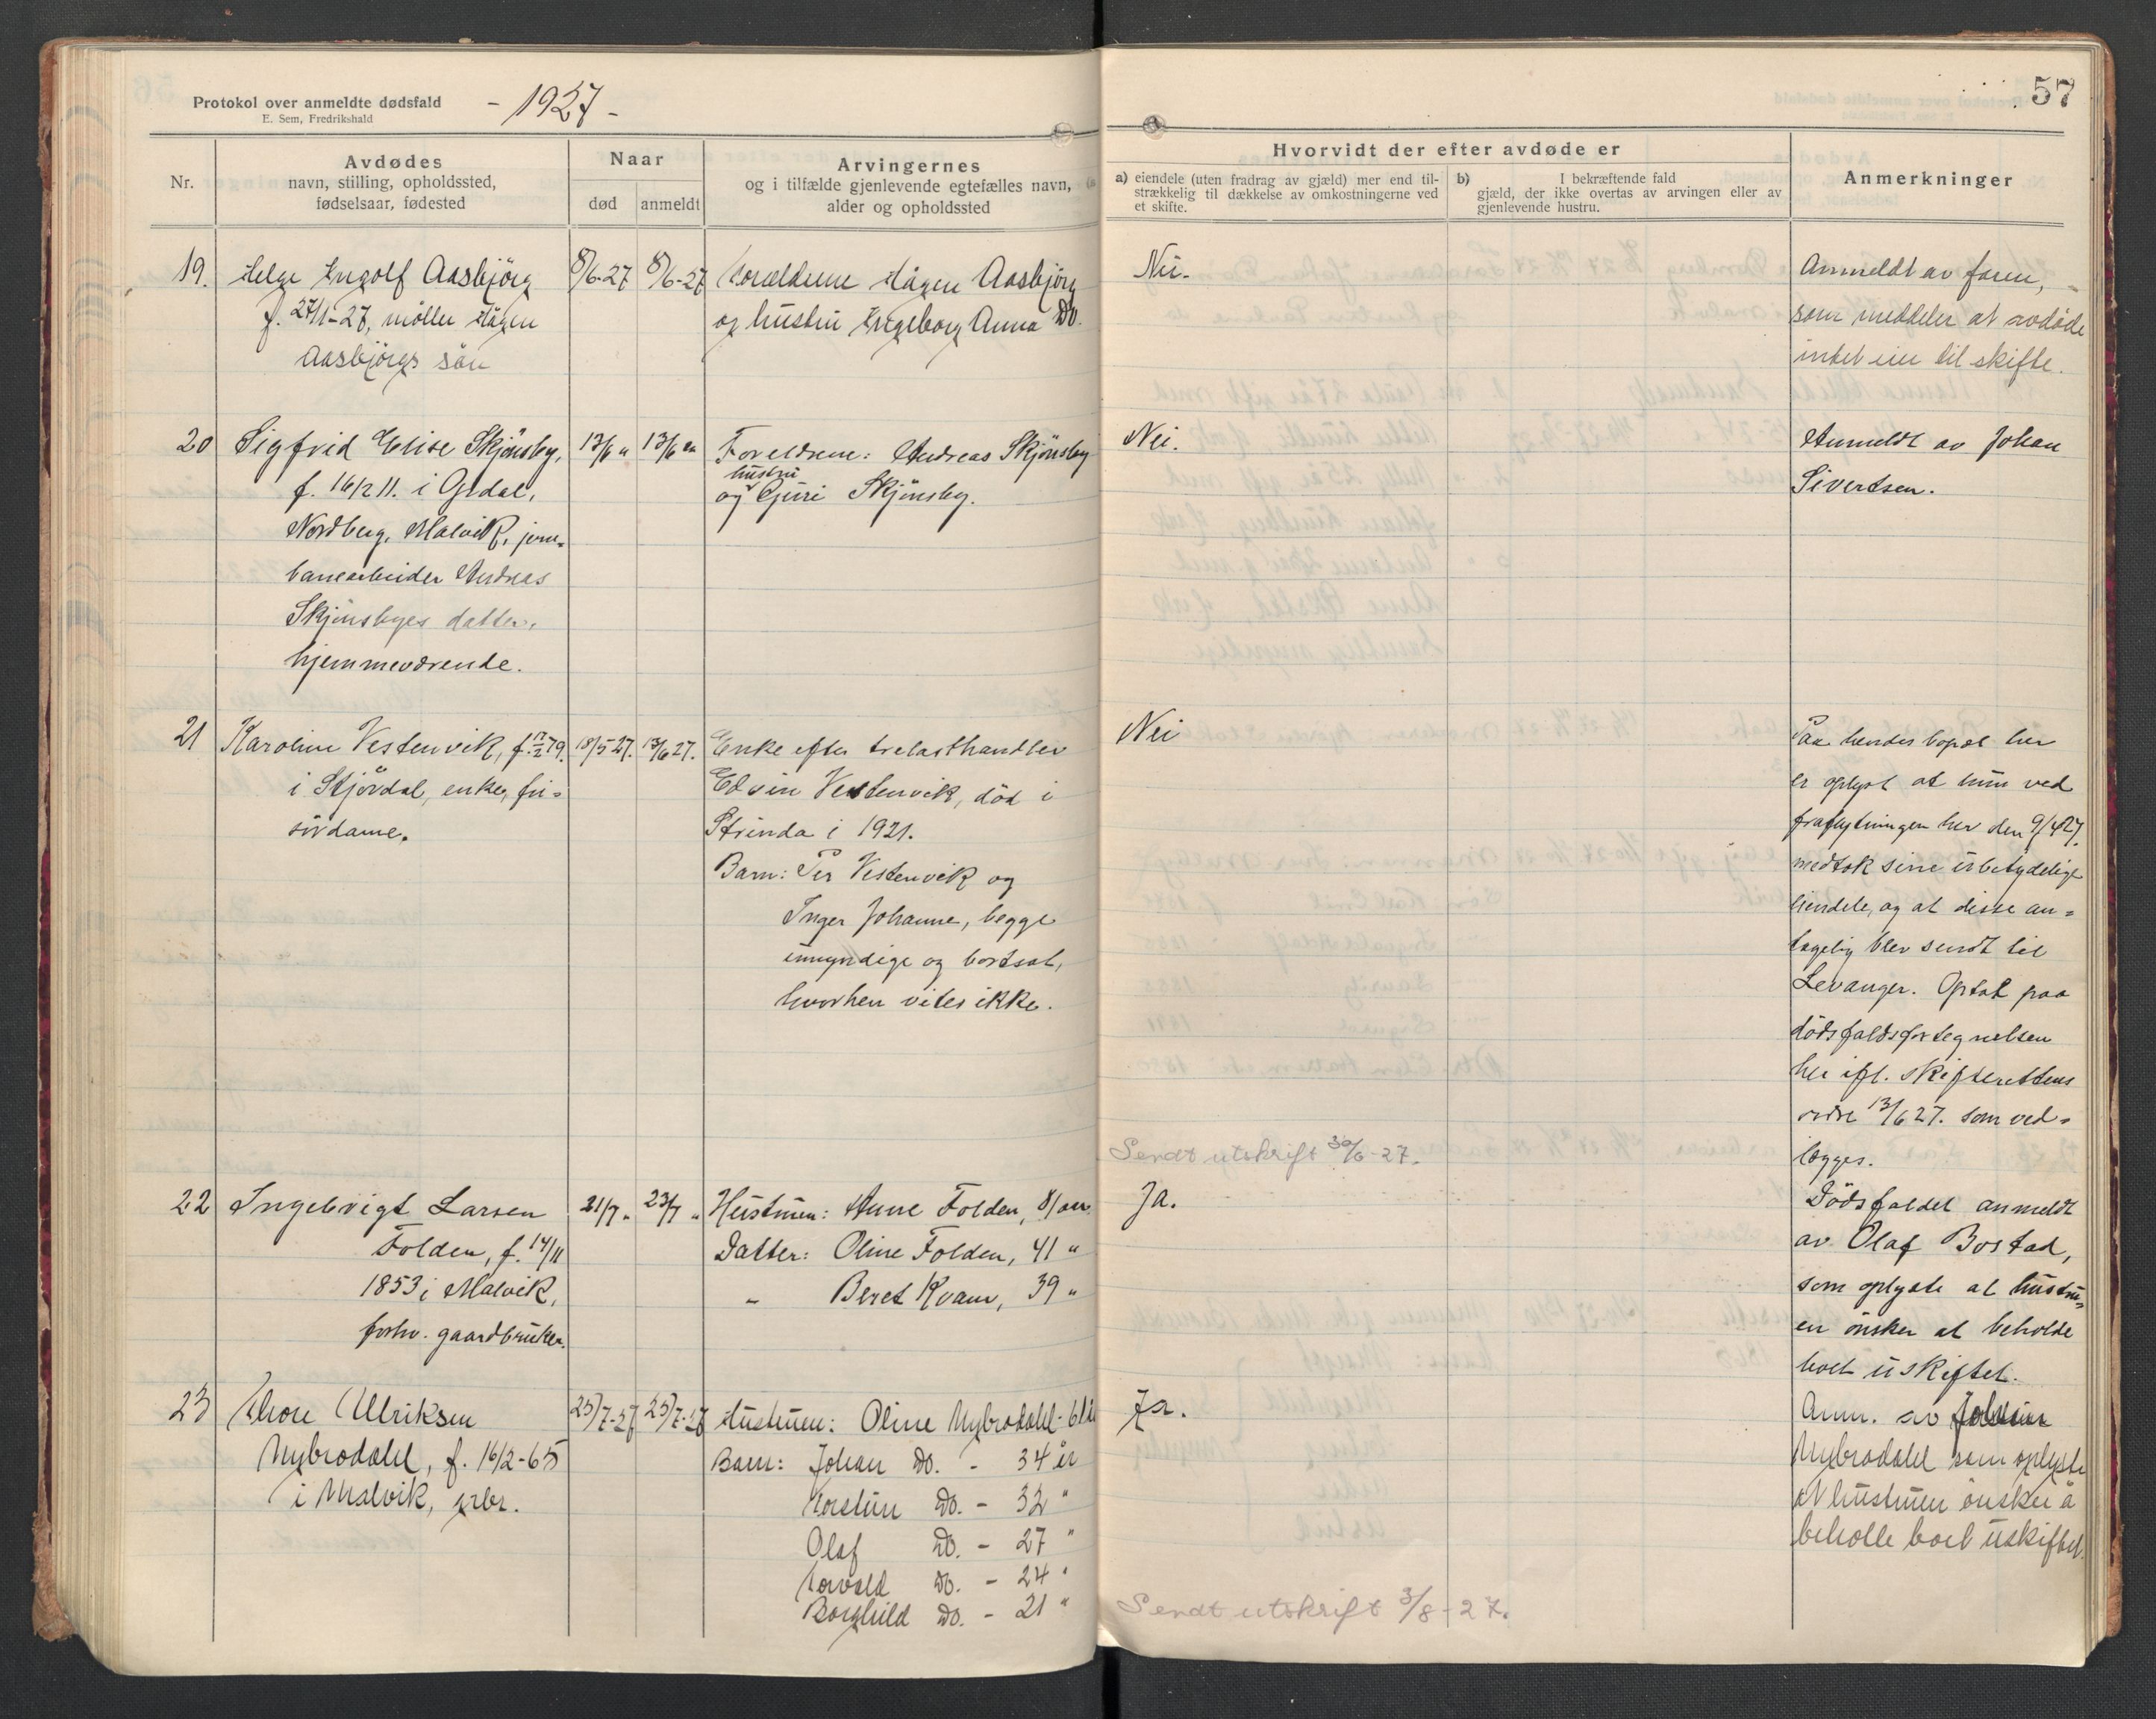 Protokol over anmeldte dødsfald
- 1927 -
E. Sem, Fredrikshald
57
Nr.
Avdødes
navn, stilling, opholdssted,
fødselsaar, fødested
Naar
død
anmeldt
Arvingernes
og i tilfælde gjenlevende egtefælles navn,
alder og opholdssted
Hvorvidt der efter avdøde er
a) eiendele (uten fradrag av gjæld) mer end til-
strækkelig til dækkelse av omkostningerne ved
et skifte.
b) I bekræftende fald
gjæld, der ikke overtas av arvingen eller av
gjenlevende hustru.
Anmerkninger
19. Helge Ingolf Aasbjörg
f. 27/1-27, møller Hågen
Aasbjörgs sön
8/6-27 8/6-27
Forældrene Hågen Aasbjörg
og hustru Ingeborg Anna Do.
Nei.
Anmeldt av faren,
som meddeler at avdöde
intet eier til skifte.
20 Sigfrid Elise Skjönsby,
f. 16/2 11. i
Nordberg, Malvik, jern-
banearbeider Andreas
Skjönsbyes datter,
hjemmeværende.
13/6 " 13/6 "
Foreldrene: Andreas Skjönsby
hustru
og Guri Skjönsby.
Nei.
Anmeldt av Johan
Sivertsen.
21 Karoline Vestenvik, f. 17/2 79.
i Stjördal, enke, fri-
sördame.
18/5 27. 13/6 27.
Enke efter trelasthandler
Edvin Vestenvik, död i
Strinda i 1921.
Barn: Per Vestenvik og
Inger Johanne, begge
umyndige og bortsat,
hvorhen vites ikke.
Nei
Paa hendes bopæl her
er oplyst at hun ved
fraflytningen her den 9/4 27.
medtok sine ubetydelige
eiendele, og at disse an-
tagelig blev sendt til
Levanger. Optat paa
dödsfaldsfortegnelsen
her ifl. skifterettens
ordre 13/6 27. som ved-
lægges.
Sendt utskrift 30/6-27.
22 Ingebrigt Larsen
Folden, f. 14/11
1853 i Malvik,
forhv. gaardbruker.
21/7 " 23/7 "
Hustruen: Anne Folden, 81 aar
Datter: Oline Folden, 41 "
" Beret Kvam, 39 "
Ja.
Dödsfaldet anmeldt
av Olaf Bostad,
som oplyste at hustru-
en önsker at beholde
boet uskiftet.
23 Thore Ulriksen
Nybrodahl, f. 16/2-65
i Malvik, grbr.
23/7-27 25/7-27
Hustruen: Oline Nybrodahl - 61 år
Barn: Johan Do. - 34 år
Torstein Do. - 32 "
Olaf Do. - 27 "
Torvald Do. - 24 "
Borghild Do. - 21 "
Ja.
Anm. av
Nybrodahl som oplyste
at hustruen önsker å
beholde boet uskiftet.
Sendt utskrift 3/8-27.